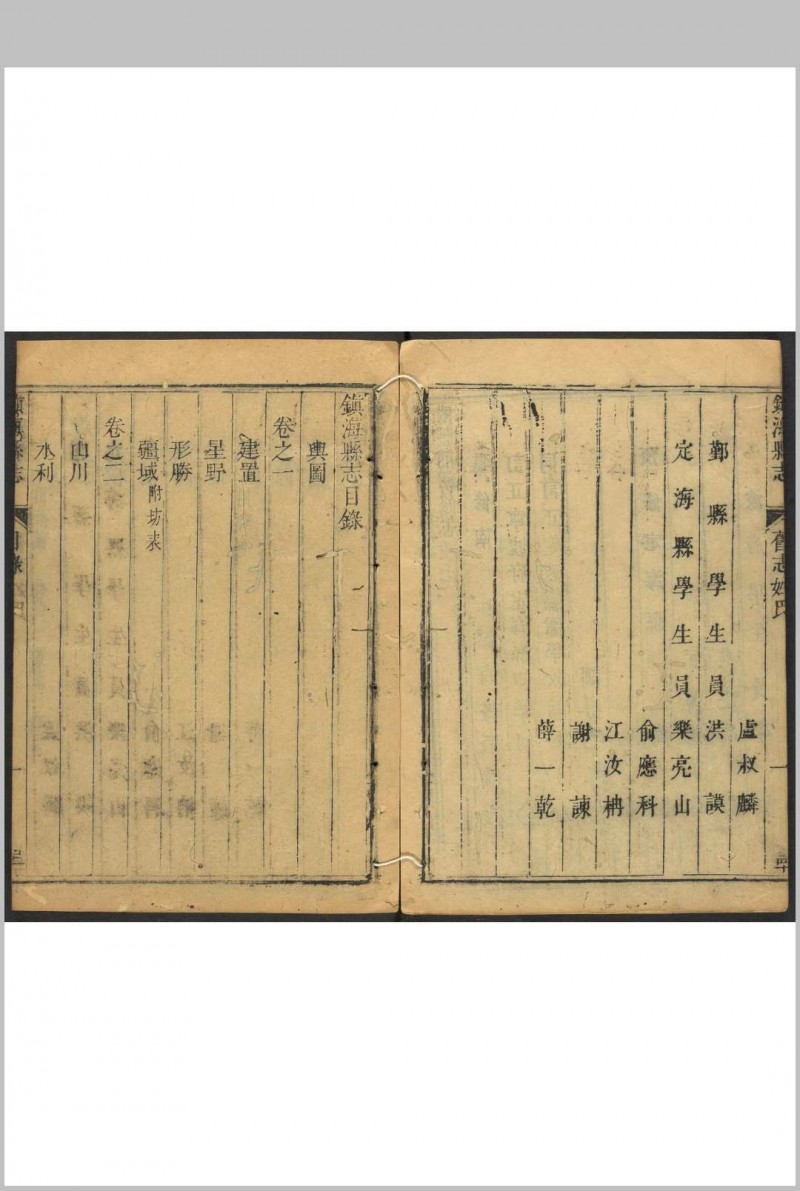 鎮海縣志 舊志姓氏 一
盧叔麟
鄞縣學生員洪謨
定海縣學生員樂亮山
俞應科
江汝楠
謝諫
薛一乾
鎮海縣志目錄
輿圖
卷之一
建置
星野
形勝
疆域附坊表
卷之二
山川
水利
鎮海縣志 目錄 一